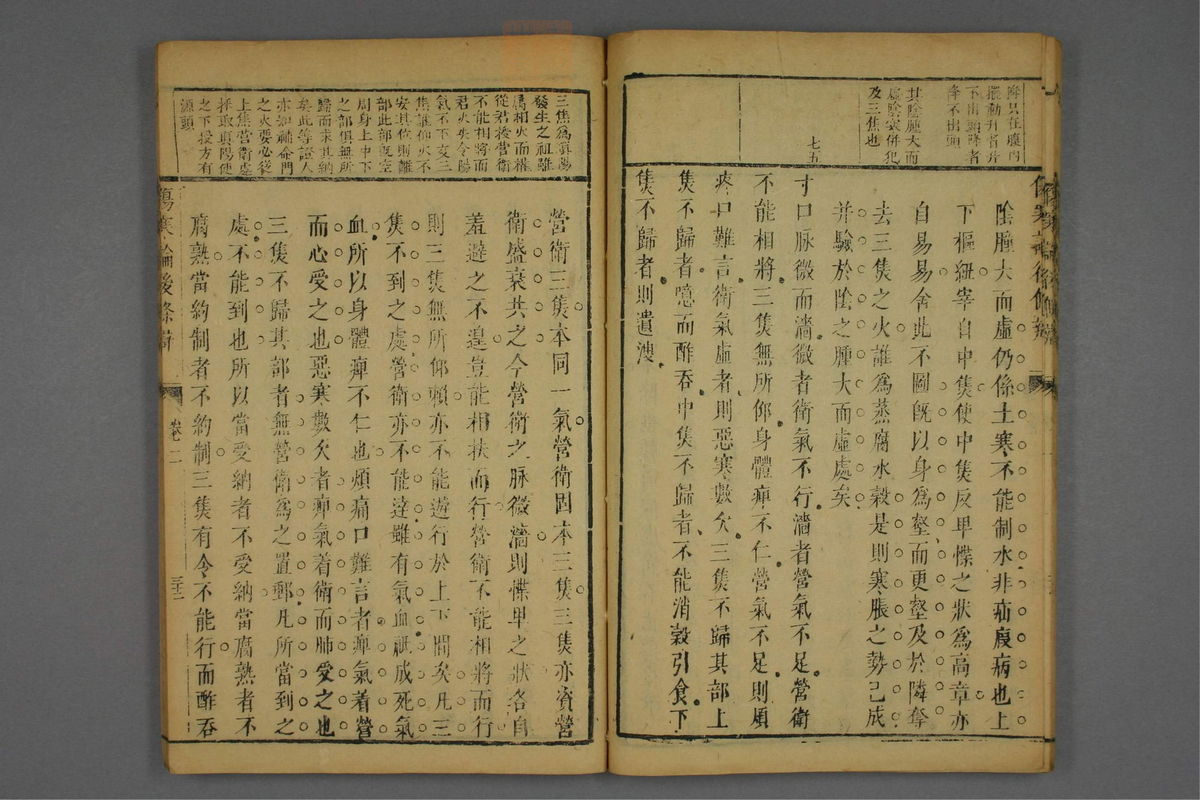 降只在腹內
擺動升者升
不出頭降者
降不出頭
其陰腫大而
虛陰寒併犯
及三焦也
七五
陰腫大而虛仍係土寒不能制水非疝瘕病也上
下樞紐宰自中隻使中隻反卑惵之狀為高章亦
自易易舍此不圖旣以身為壑而更壑及於隣奪
去三隻之火誰為蒸腐水穀是則寒脹之勢已成
并驗於陰之腫大而虛處矣
寸口脉微而濇微者衛氣不行濇者營氣不足營衛
不能相將三隻無所仰身體痺不仁營氣不足則煩
疼口難言衛氣虛者則惡寒數欠三隻不歸其部上
隻不歸者噫而酢吞中隻不歸者不能消穀引食下
隻不歸者則遺溲
三焦為真陽
發生之祖雖
屬相火而權
從君後營衛
不能相將而
君火失令陽
氣不下交三
焦誰仰火不
安其位則離
部此部旣空
周身上中下
之部俱無所
歸而来其納
矣此等證人
亦知補命門
之火要必從
上焦營衛處
採取真陽使
之下援方有
源頭
營衛三隻本同一氣營衛固本三隻三隻亦資營
衛盛衰共之今營衛之脉微濇則惵卑之狀各自
羞避之不遑豈能相扶而行營衛不能相將而行
則三隻無所仰賴亦不能遊行於上下間矣凡三
隻不到之處營衛亦不能達雖有氣血祇成死氣
血所以身體痺不仁也煩痛口難言者痺氣着營
而心受之也惡寒數欠者痺氣着衛而肺受之也
三隻不歸其部者無營衛為之置郵凡所當到之
處不能到也所以當受納者不受納當腐熟者不
腐熟當約制者不約制三隻有令不能行而酢吞
傷寒論後條辨
卷二
三十二